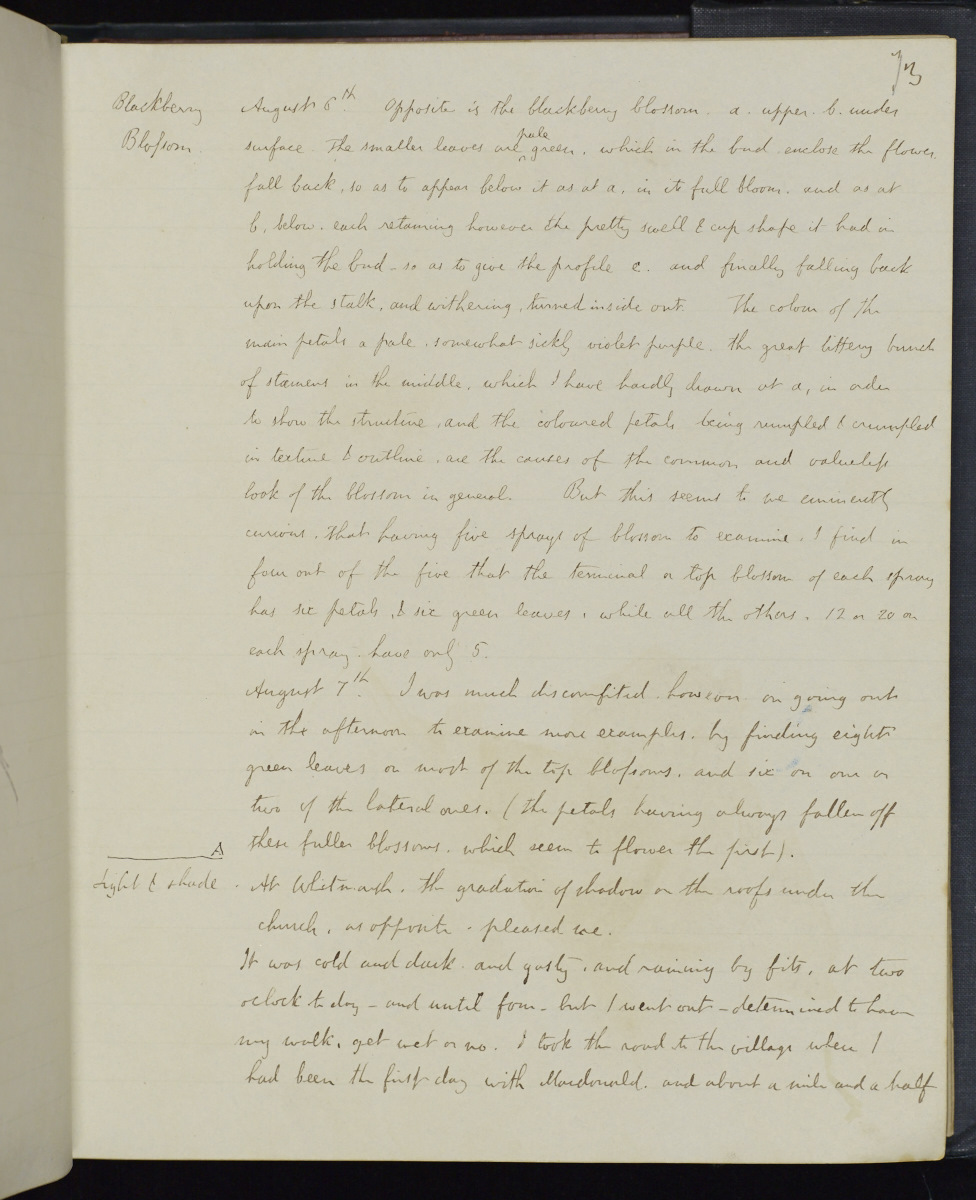 73
Blackberry August 6th. Opposite is the blackberry blossom. a. upper. b. under
Blossom. surface. The smaller leaves are pale green, which in the bud enclose the flower,
fall back, so as to appear below it as at a, in its full bloom. and as at
b, below. each retaining however the pretty swell & cup shape it had in
holding the bud - so as to give the profile c. and finally falling back
upon the stalk, and withering, turned inside out. The colour of the
main petals a pale, somewhat sickly violet purple. the great littery bunch
of stamens in the middle, which I have hardly drawn at a, in order
to show the structure, and the coloured petals being rumpled & crumpled
in texture & outline, are the causes of the common and valueless
look of the blossom in general. But this seems to me eminently
curious, that having five sprays of blossom to examine, I find in
four out of the five that the terminal or top blossom of each spray
has six petals, & six green leaves, while all the others, 12 or 20 on
each spray have only 5.
August 7th. I was much discomfited however on going out
in the afternoon to examine more examples, by finding eight
green leaves on most of the top blossoms, and six on one or
two of the lateral ones. (the petals having always fallen off
these fuller blossoms, which seem to flower the first).
A
Light & shade. At Whitmarsh, the gradation of shadow on the roofs under the
church, as opposite, pleased me.
It was cold and dark and gusty, and raining by fits, at two
oclock to day - and until four - but I went out - determined to have
my walk, get wet or no. I took the road to the village where I
had been the first day with Macdonald. and about a mile and a half